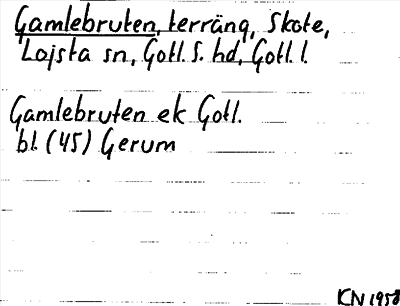 Gamlebruten, terräng, Skote,
Lojsta sn, Gotl. S. hd, Gotl. l.
Gamlebruten ek Gotl.
bl. (45) Gerum
KN 1958